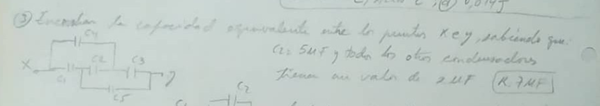 ③ Encontrar la capacidad equivalente entre los puntos X e y, sabiendo que:
C2 = 5 μF y todos los otros condensadores
tienen un valor de 2 μF R. 7 μF
C4
X C1 C2 C3 y
C5
C2
C1